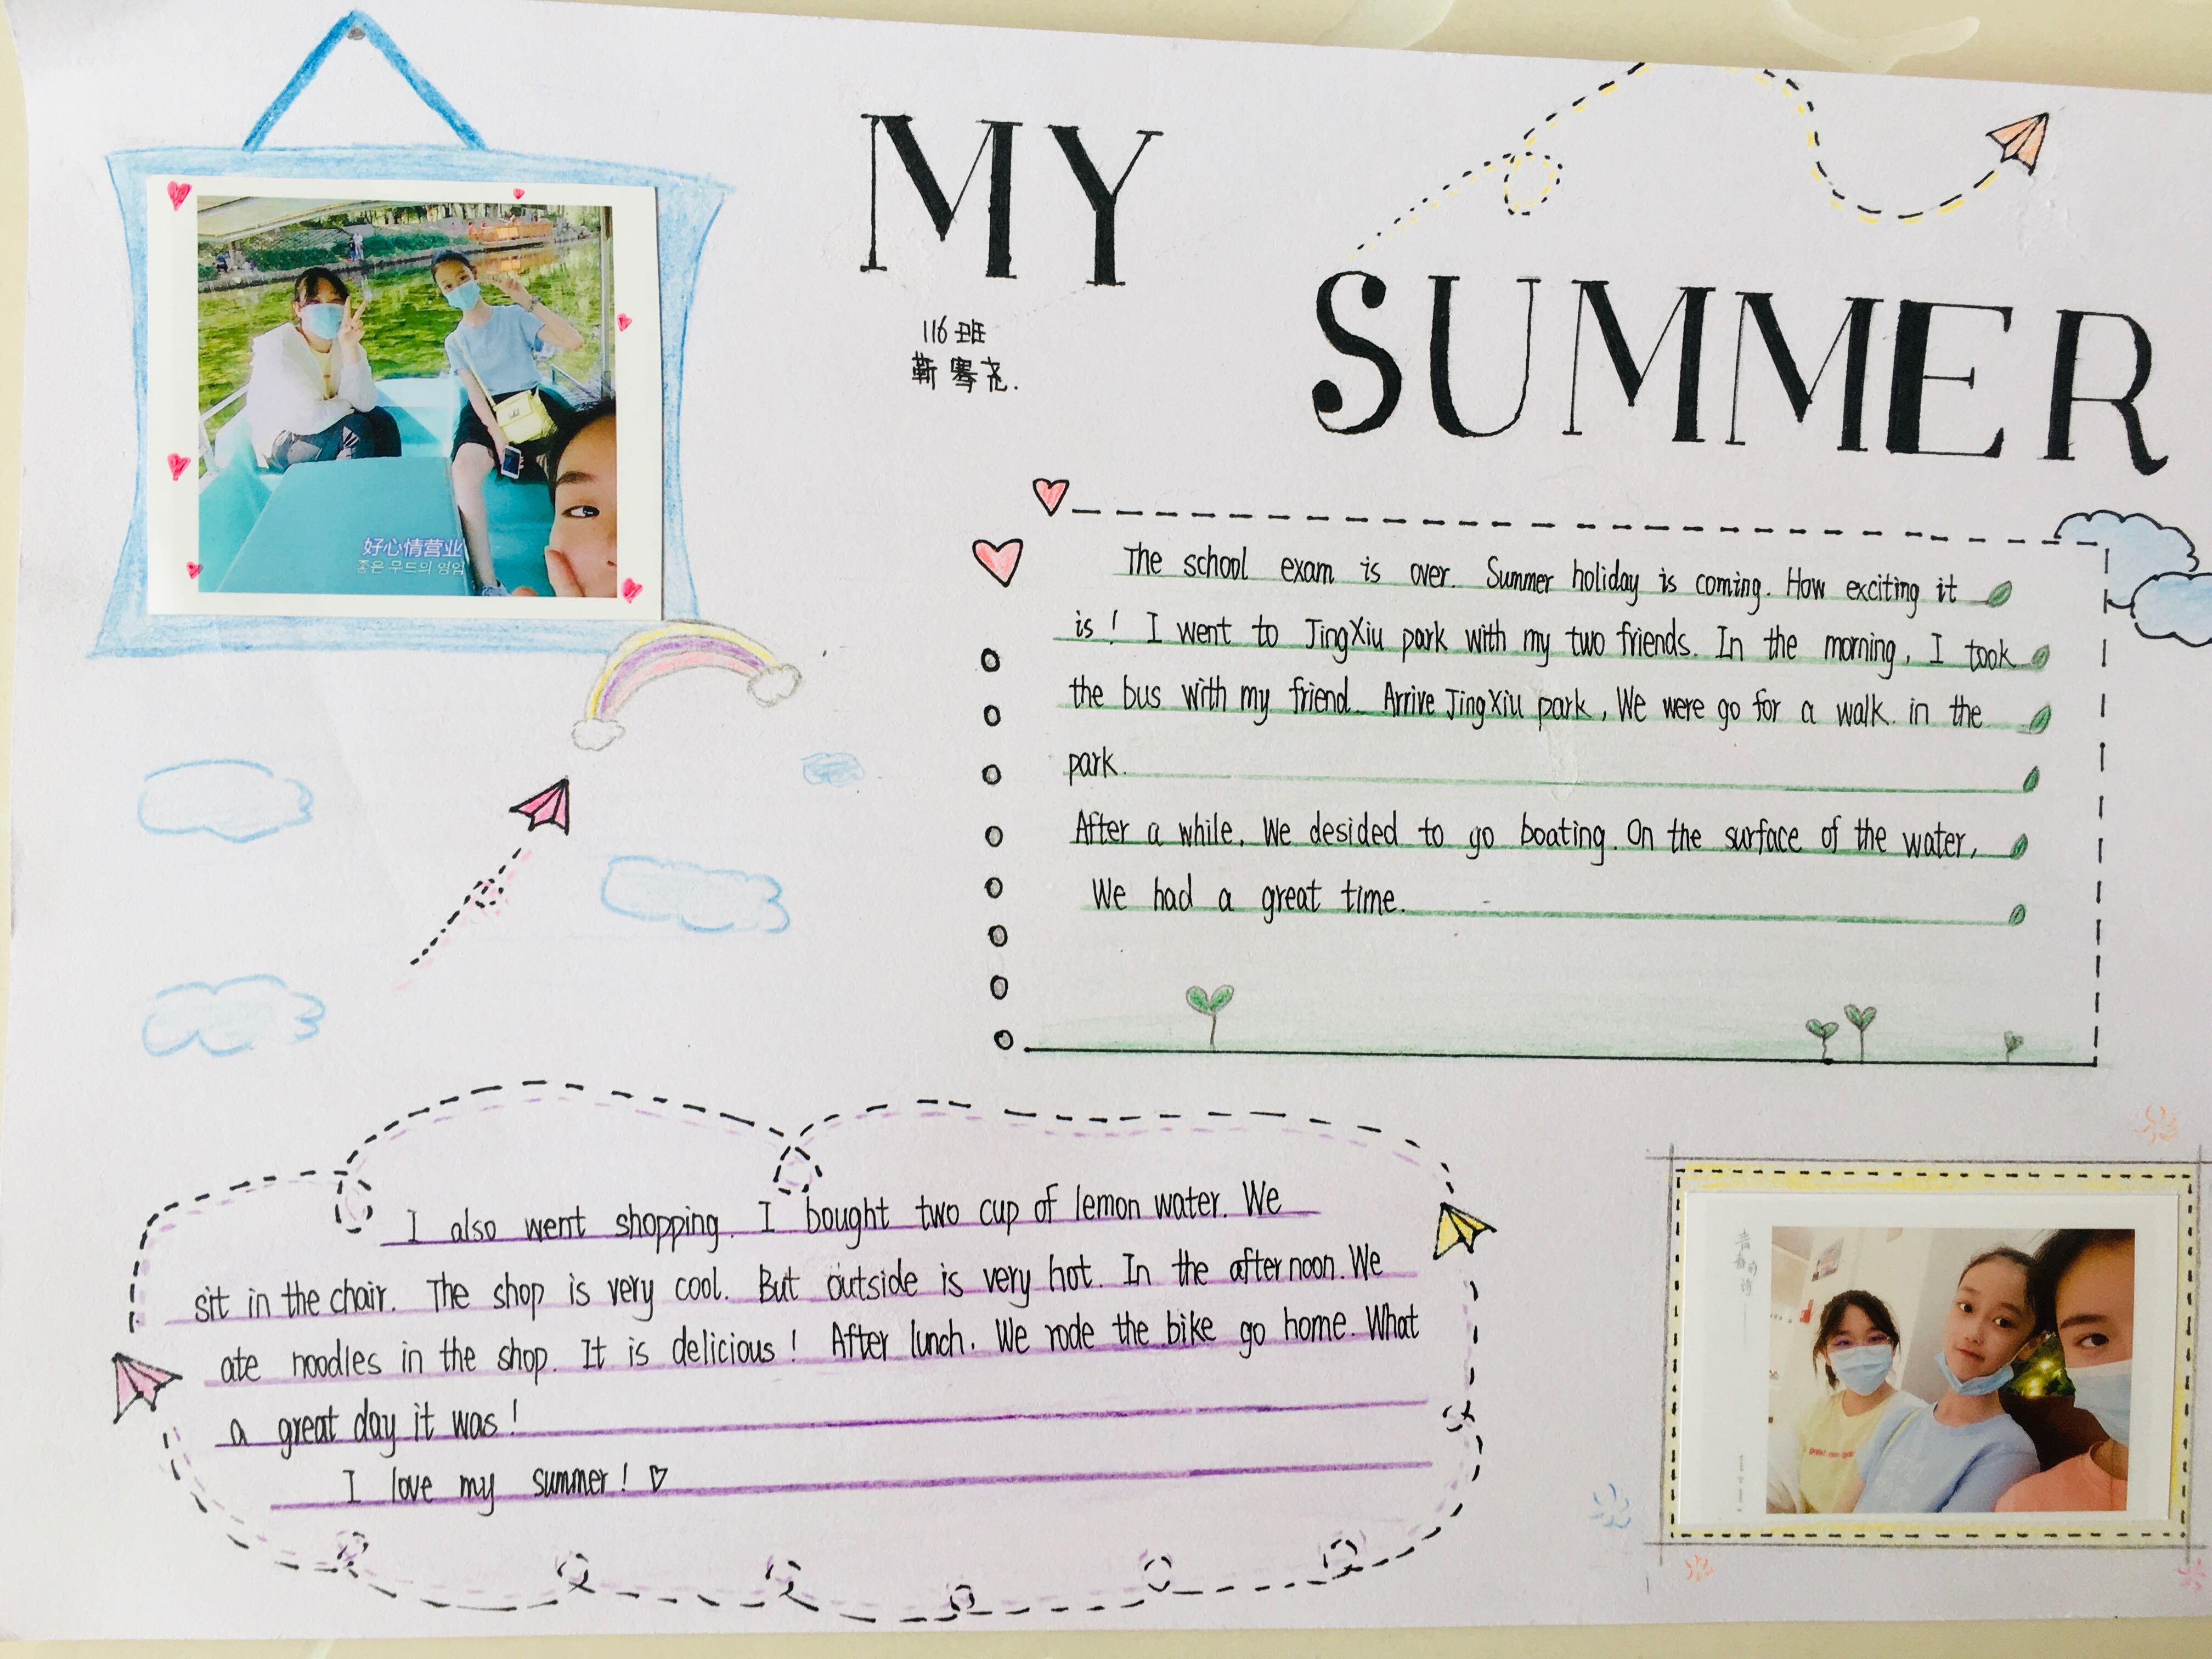 MY
SUMMER
116班
靳骞尧.
好心情营业
좋은 무드의 영업
The school exam is over. Summer holiday is coming. How exciting it
is! I went to JingXiu park with my two friends. In the morning, I took
the bus with my friend. Arrive JingXiu park, We were go for a walk. in the
park.
After a while, We desided to go boating. On the surface of the water,
We had a great time.
I also went shopping. I bought two cup of lemon water. We
sit in the chair. The shop is very cool. But outside is very hot. In the afternoon. We
ate noodles in the shop. It is delicious! After lunch. We rode the bike go home. What
a great day it was!
I love my summer! ♡
青春的诗